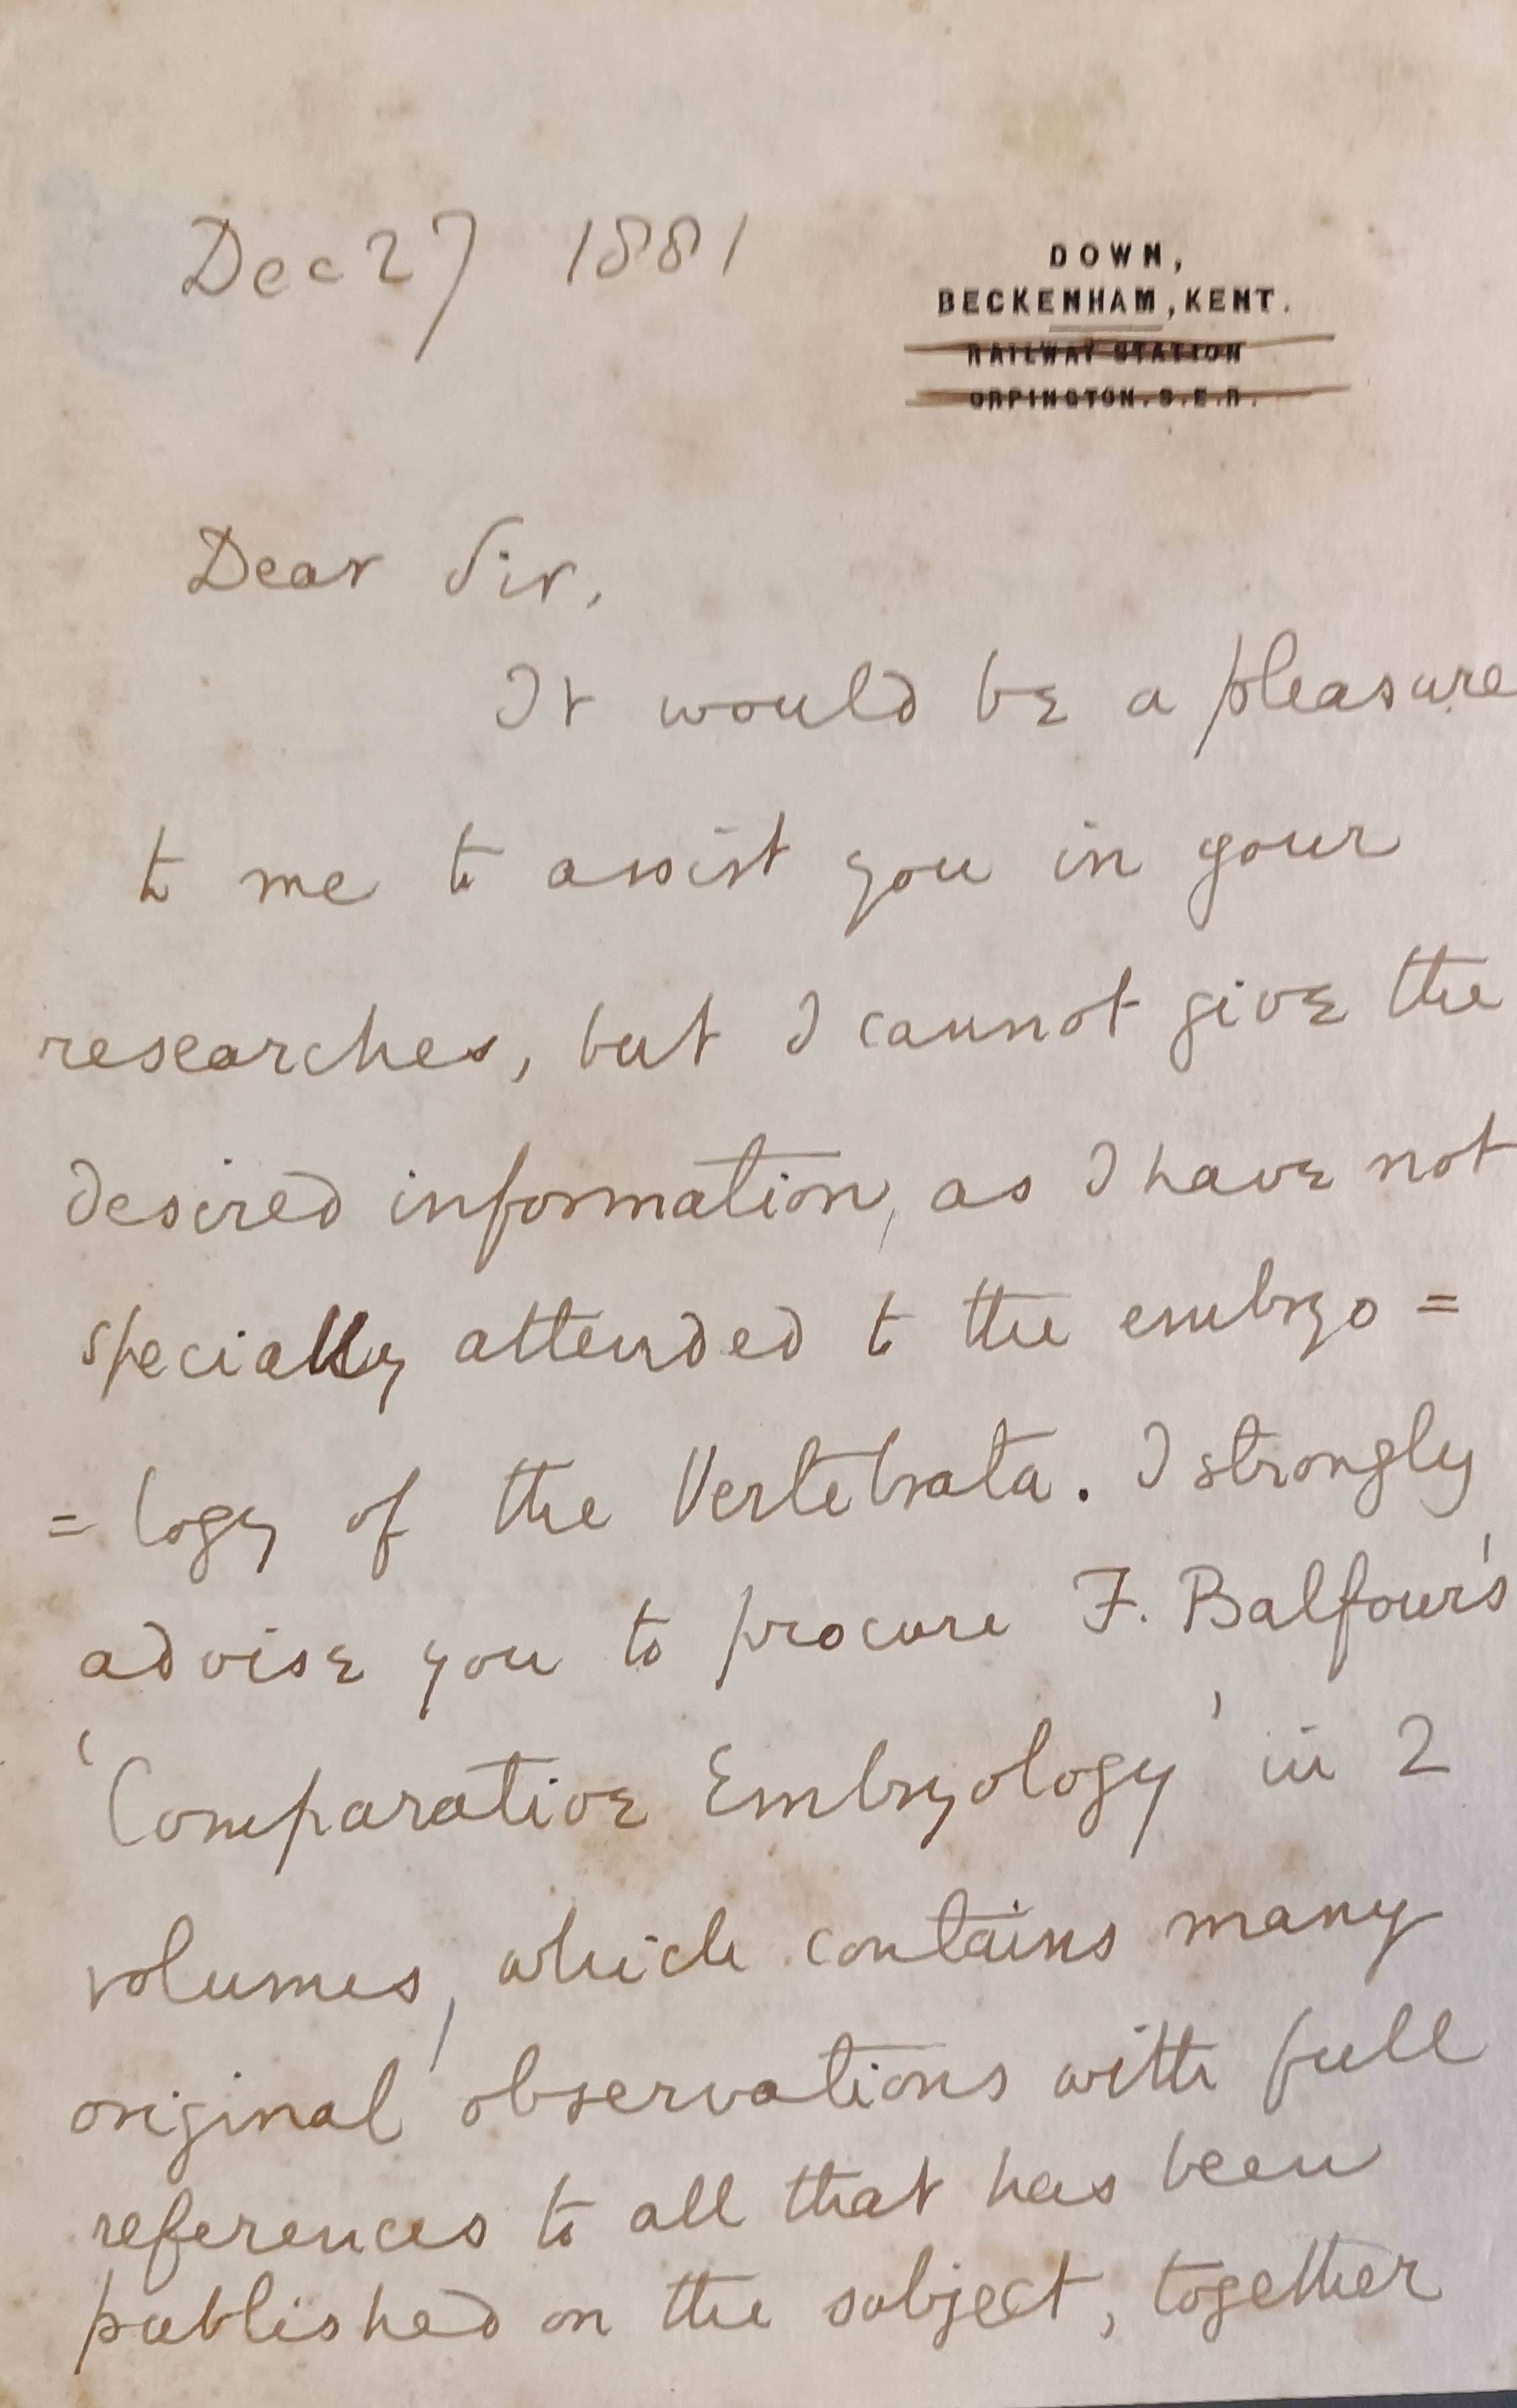 Dec 27 1881
DOWN,
BECKENHAM, KENT.
RAILWAY STATION
ORPINGTON. S.E.R.
Dear Sir,
It would be a pleasure
to me to assist you in your
researches, but I cannot give the
desired information, as I have not
specially attended to the embryo =
= logy of the Vertebrata. I strongly
advise you to procure F. Balfour's
'Comparative Embryology' in 2
volumes, which contains many
original observations with full
references to all that has been
published on the subject, together